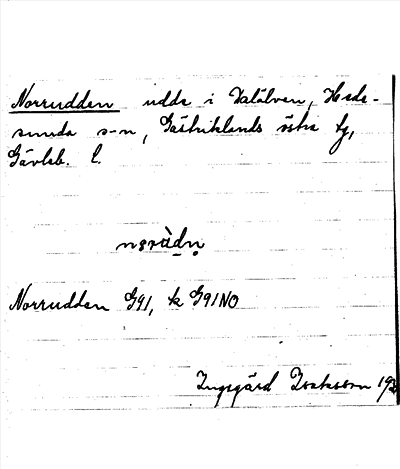 Norrudden udde i Dalälven, Heds-
sunda s-n, Gästriklands östra tg,
Gävleb. l.
Norrudden G91, k G91NO
Ingegärd Isaksson 193